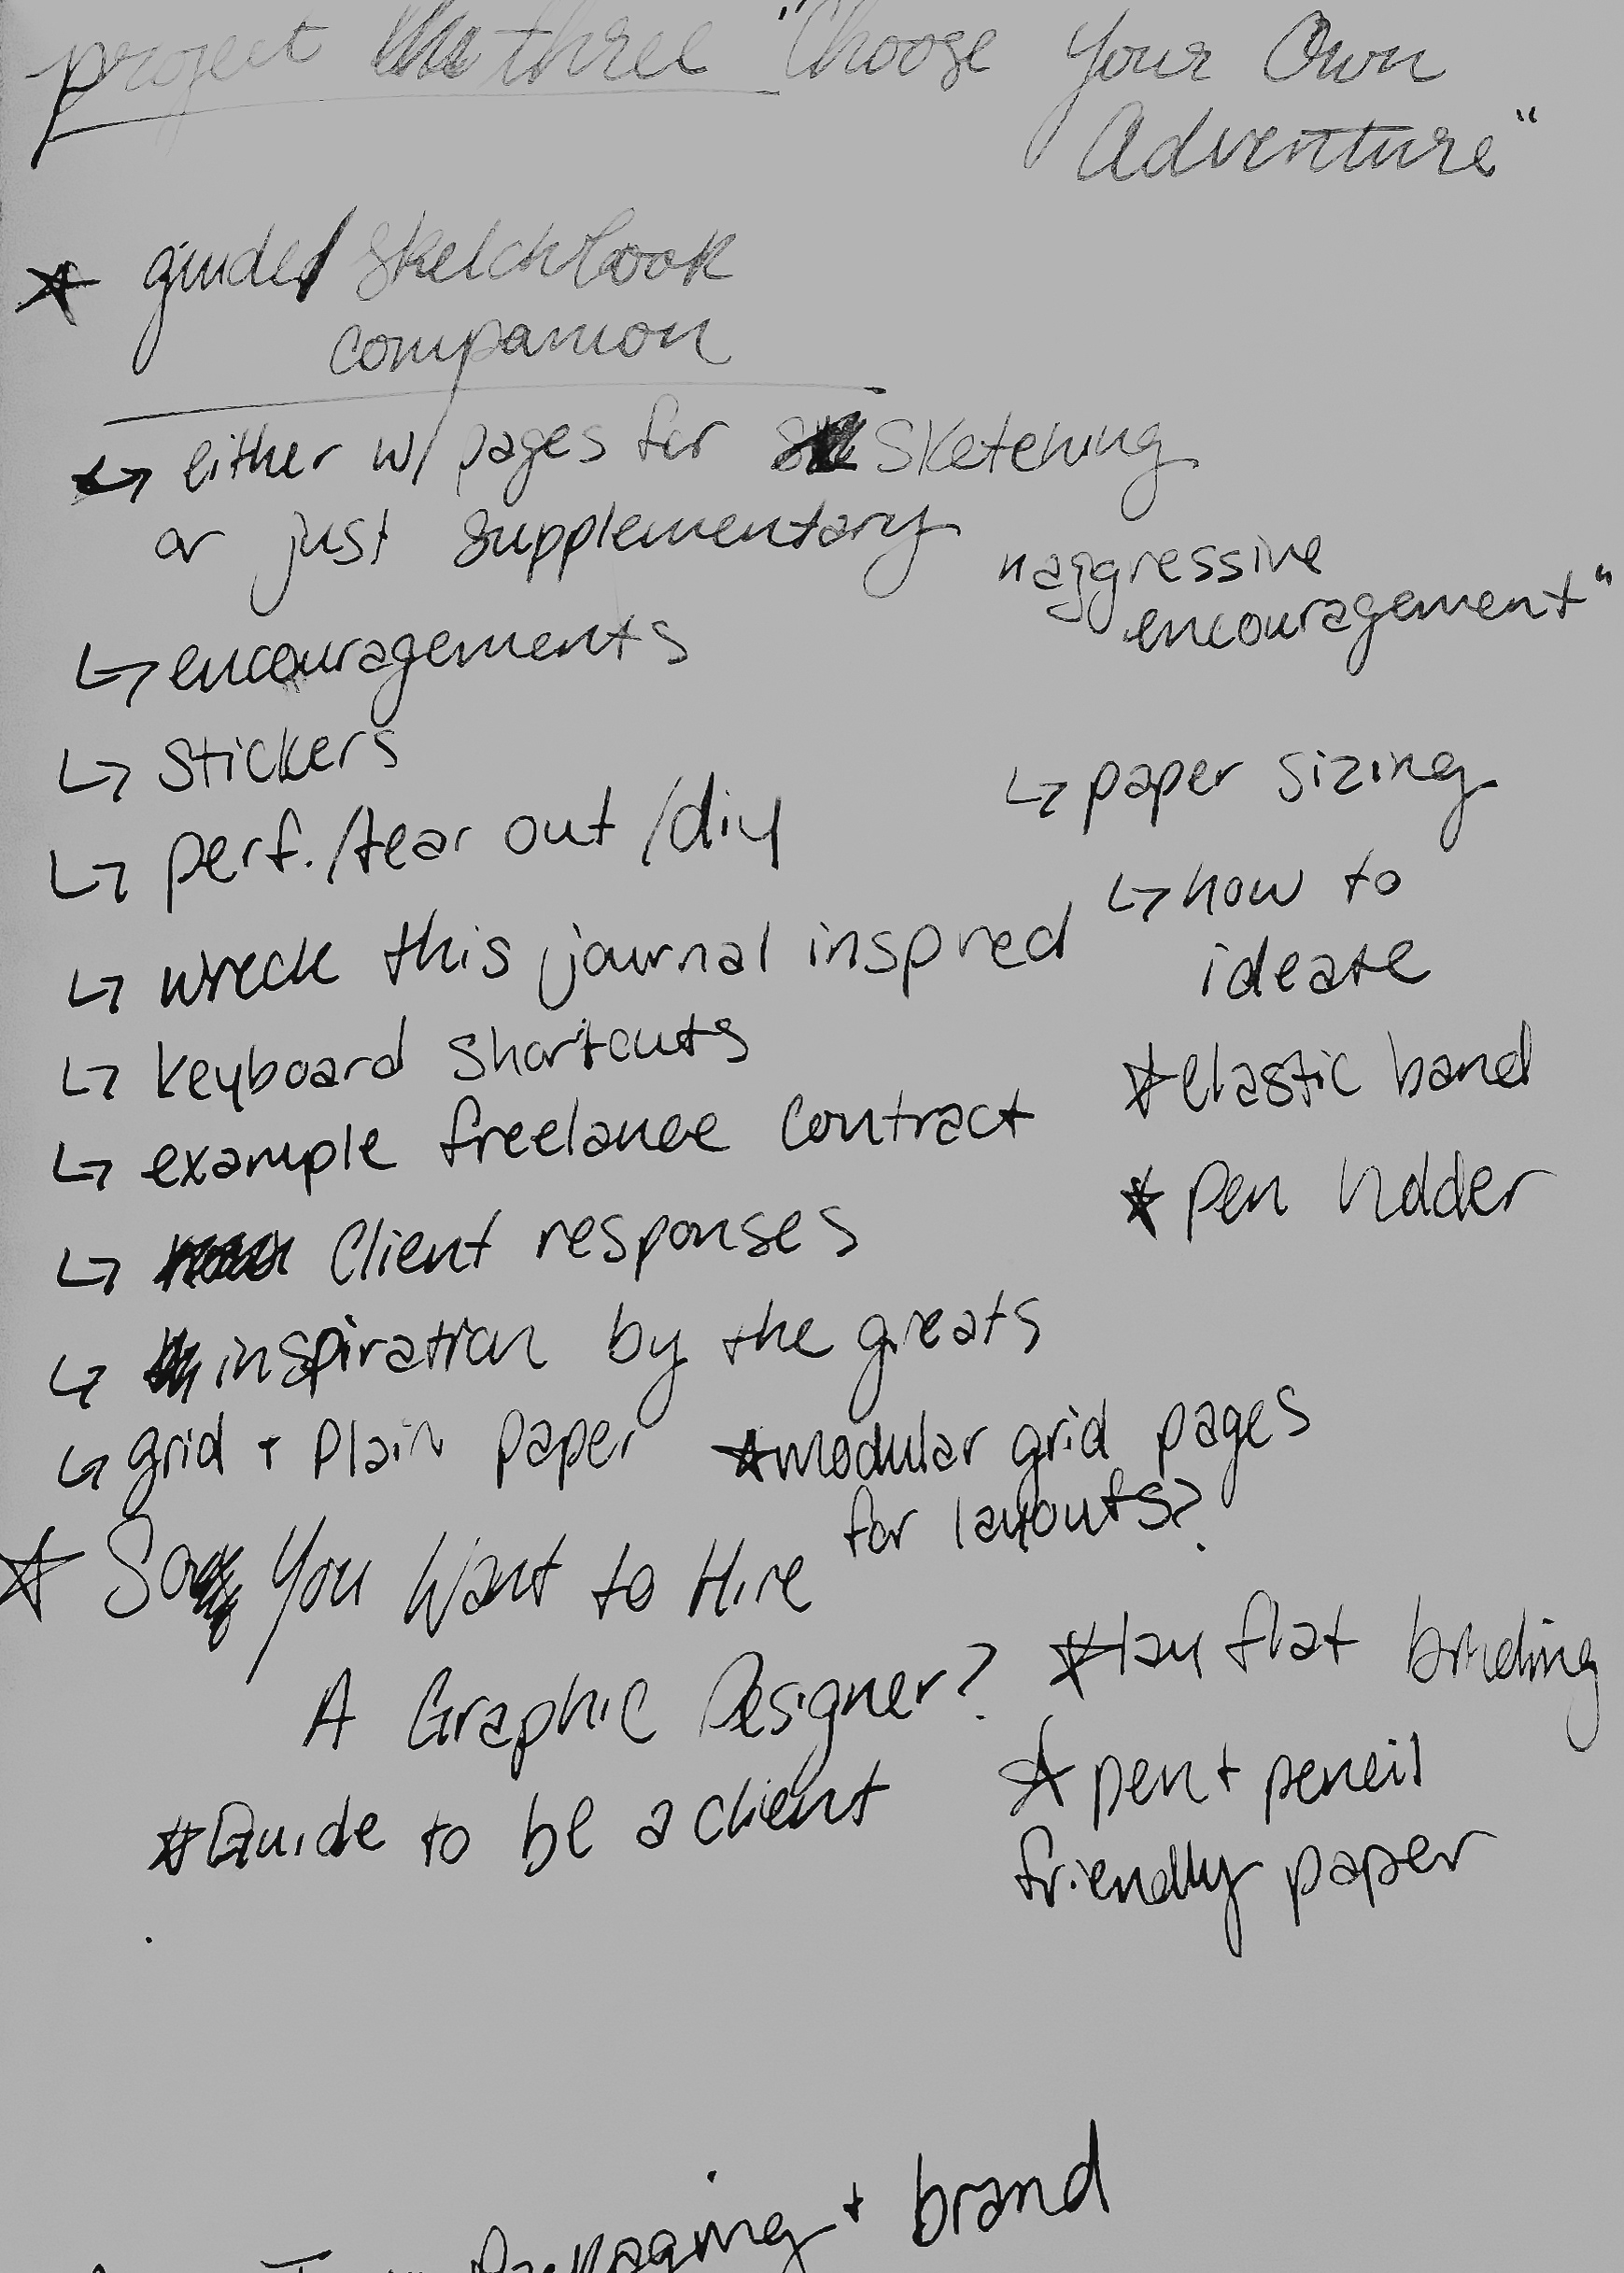 project three "Choose Your Own
Adventure"
☆ guided sketchbook
companion
↳ either w/ pages for sketching
or just supplementary
"aggressive
encouragement"
↳ encouragements
↳ stickers
↳ paper sizing
↳ perf./tear out/diy
↳ how to
ideate
↳ wreck this journal inspired
↳ keyboard shortcuts
☆ elastic band
↳ example freelance contract
☆ pen holder
↳ client responses
↳ inspiration by the greats
↳ grid + plain paper ☆ modular grid pages
for layouts?
☆ So You Want to Hire
A Graphic Designer?
☆ lay flat binding
☆ pen + pencil
friendly paper
☆ Guide to be a client
Packaging + brand